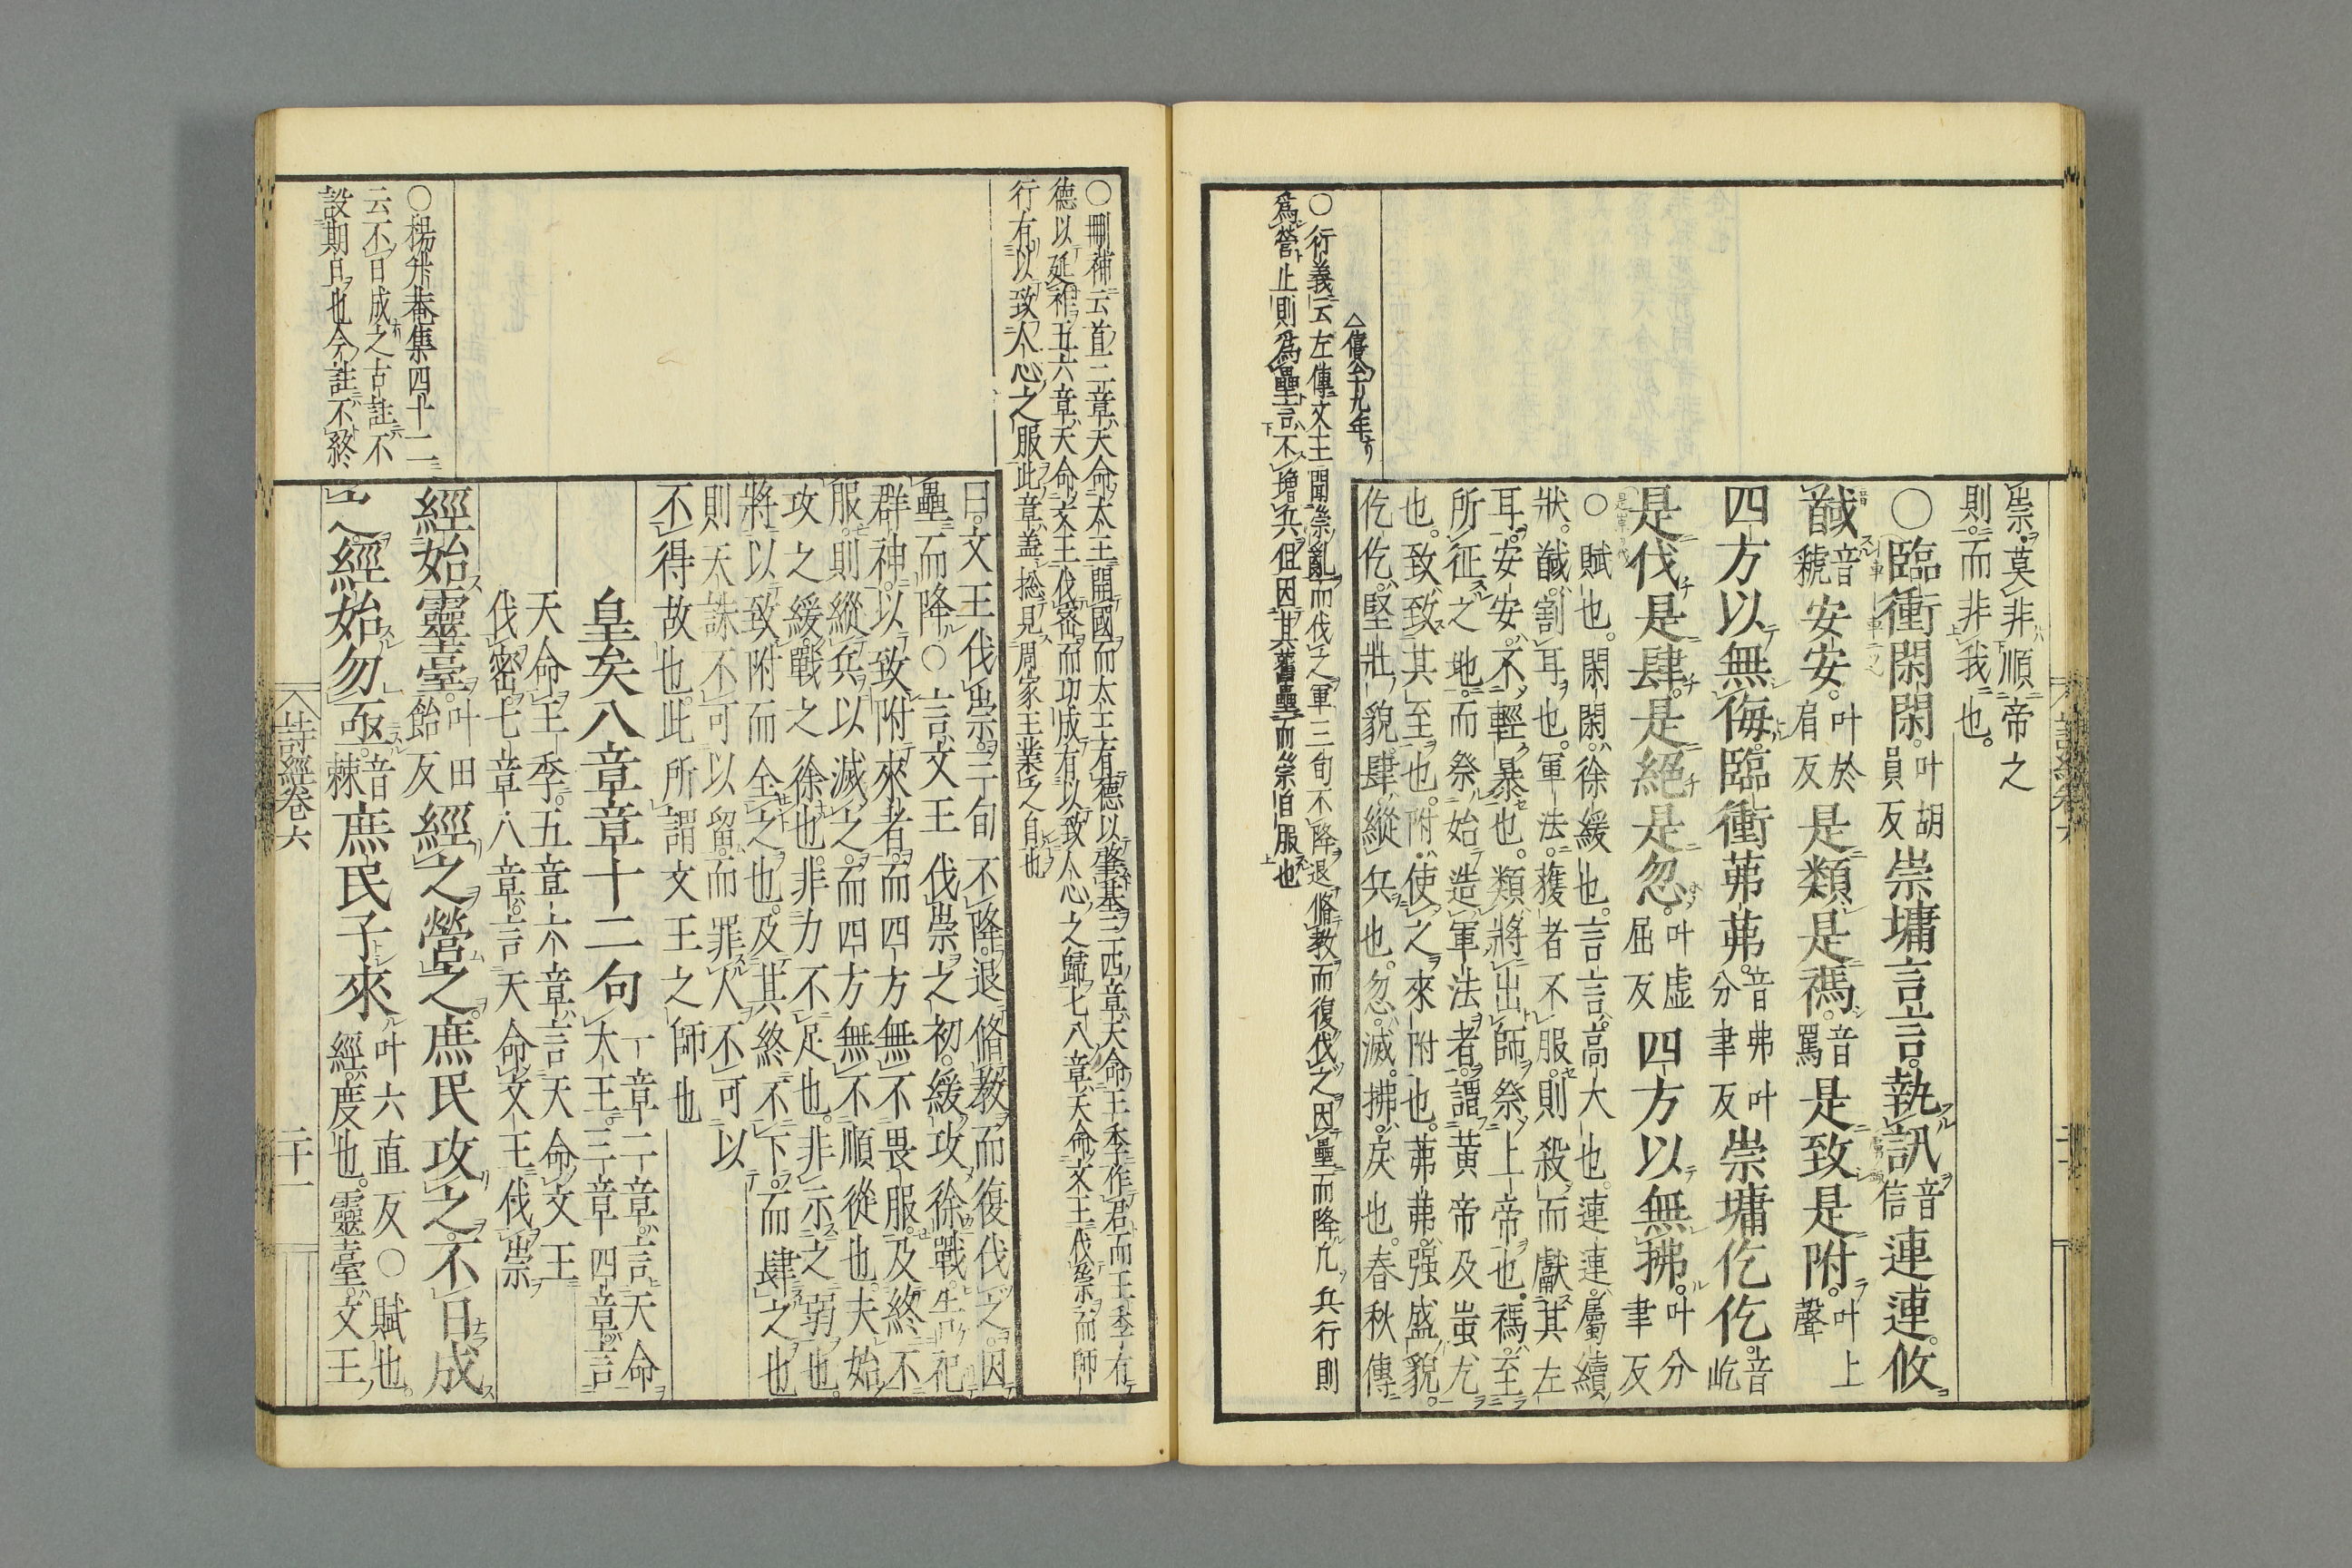 崇莫非順帝之
則而非我也。
○臨衝閑閑。叶胡員反崇墉言言。執訊音信連連。攸
馘音虢安安。叶於肩反是類是禡。音罵是致是附。叶上聲
四方以無侮。臨衝茀茀。音弗叶分聿反崇墉仡仡。音屹
是伐是肆。是絕是忽。叶虛屈反四方以無拂。叶分聿反
○賦也。閑閑。徐緩也。言言。高大也。連連。屬續
狀。馘。割耳也。軍法。獲者不服。則殺而獻其左
耳。安安。不輕暴也。類。將出師。祭上帝也。禡。至
所征之地。而祭始造軍法者。謂黃帝及蚩尤
也。致。致其至也。附。使之來附也。茀茀。强盛貌。
仡仡。堅壯貌。肆。縱兵也。忽。滅。拂。戾也。春秋傳
△僖公十九年
○衍義云左傳文王聞崇亂而伐之軍三旬不降退脩教而復伐之因壘而降凢兵行則
爲營止則爲壘言不增兵但因其舊壘而崇自服也
○刪補云首二章天命太王開國而太王有德以肇基三四章天命王季作君而王季有
德以延祚五六章天命文王伐密而功成有以致人心之歸七八章天命文王伐崇而師
行有以致人心之服此章盖捴見周家王業之自也
曰。文王伐崇。三旬不降。退脩教而復伐之。因
壘而降。○言文王伐崇之初。緩攻徐戰。告祀
群神。以致附來者。而四方無不畏服。及終不
服。則縱兵以滅之。而四方無不順從也。夫始
攻之緩。戰之徐也。非力不足也。非示之弱也。
將以致附而全之也。及其終不下。而肆之也
則天誅不可以留。而罪人不可以
不得故也。此所謂文王之師也
皇矣八章章十二句
一章二章。言天命
大王。三章四章。言
天命王季。五章六章。言天命文王
伐密。七章八章。言天命文王伐崇
經始靈臺。叶田飴反經之營之。庶民攻之。不日成
之。經始勿亟。音棘庶民子來叶六直反○賦也。
經。度也。靈臺。文王
○楊升菴集四十二
云不日成之古註不
設期日也今註不終
詩經卷六
二十一